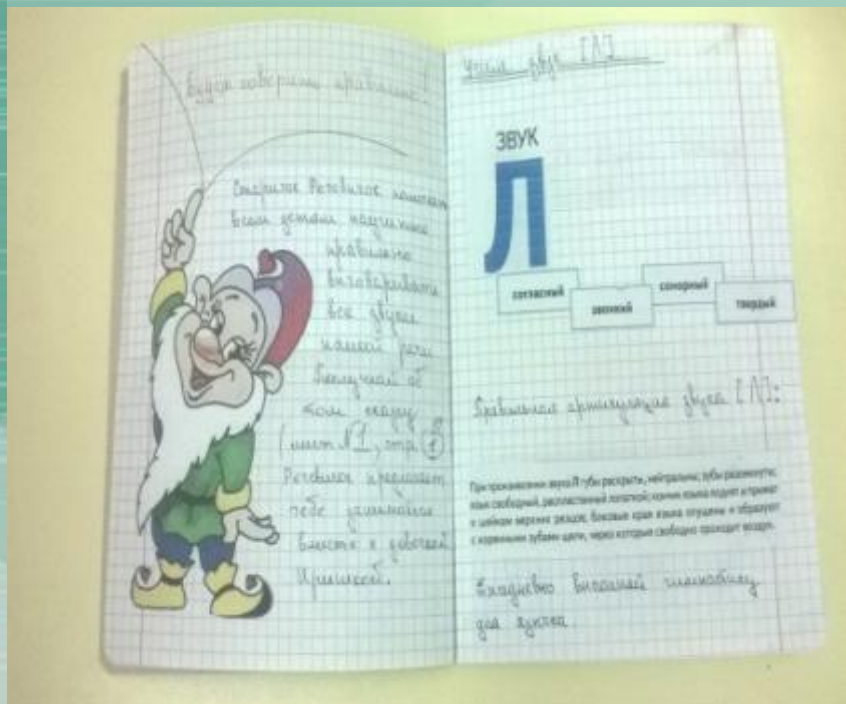 Будем говорить правильно!
Старичок Речевичок помогает
всем детям научиться
правильно
выговаривать
все звуки
нашей речи
Послушай об
этом сказку
(лист №1, стр. 1)
Речевичок предлагает
тебе заниматься
вместе с девочкой
Иришкой.
Учим звук [Л]
ЗВУК
Л
согласный
звонкий
сонорный
твердый
Правильная артикуляция звука [Л]:
При произнесении звука Л губы раскрыты, нейтральны; зубы разомкнуты;
язык свободный, распластанный лопаткой; кончик языка поднят и прижат
к шейкам верхних резцов. Боковые края языка опущены и образуют
с коренными зубами щели, через которые свободно проходит воздух.
Ежедневно выполняй гимнастику
для язычка.